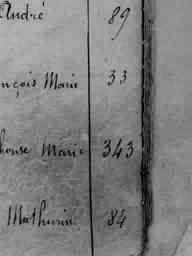 André 89
nçois Marie 33
honse Marie 343
Mathurin 84